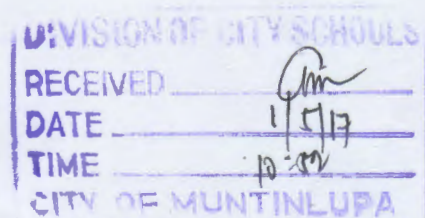 DIVISION OF CITY SCHOOLS
RECEIVED
DATE 1/5/17
TIME 10:52
CITY OF MUNTINLUPA